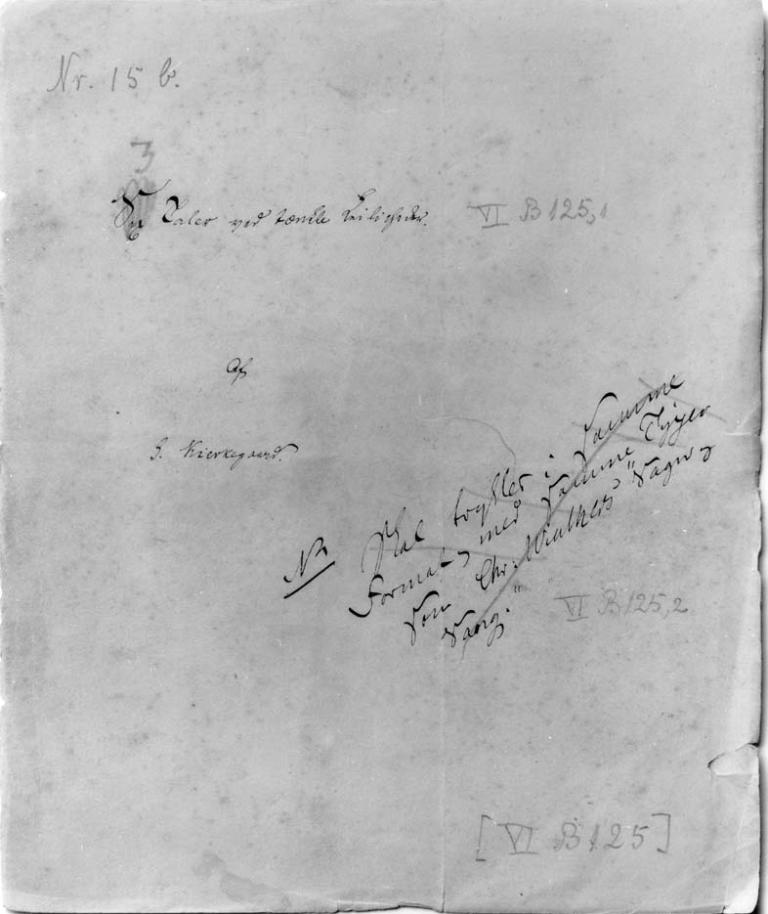 Nr. 15 b.
3
Taler ved tænkte Leiligheder. VI B 125,1
Af
S. Kierkegaard.
NB Skal trykkes i samme
Format og med samme Typer
som Chr. Winthers "Sang og
Sang."
VI B 125,2
[VI B 125]